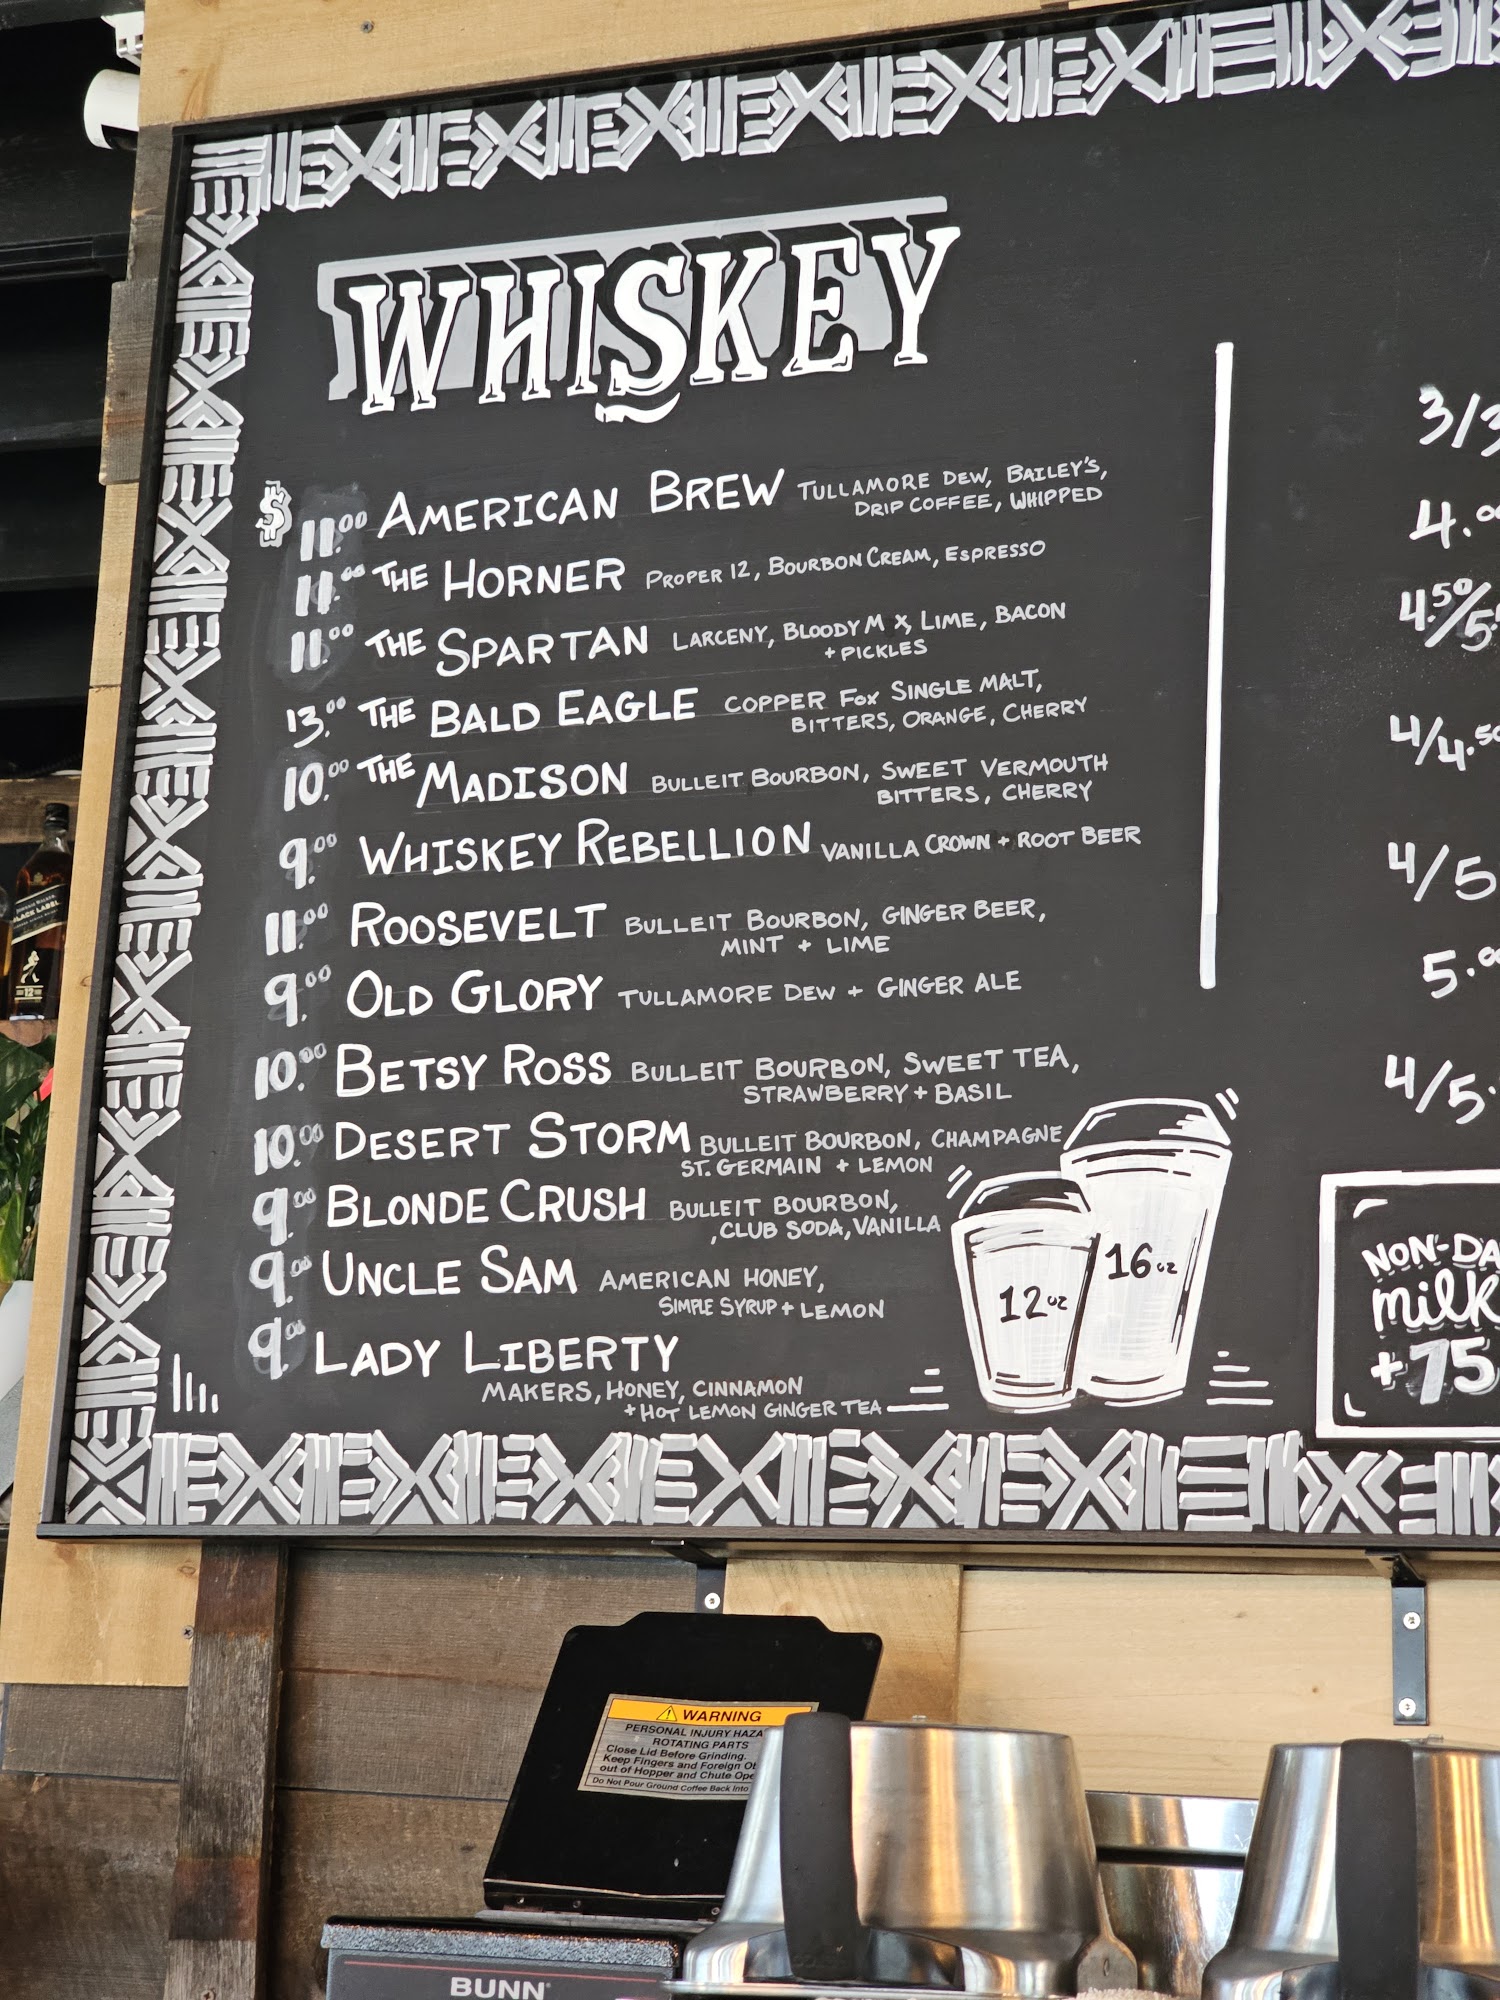 WHISKEY
$ 11.00 AMERICAN BREW TULLAMORE DEW, BAILEY'S,
DRIP COFFEE, WHIPPED
11.00 THE HORNER PROPER 12, BOURBON CREAM, ESPRESSO
11.00 THE SPARTAN LARCENY, BLOODY M X, LIME, BACON
+ PICKLES
13.00 THE BALD EAGLE COPPER FOX SINGLE MALT,
BITTERS, ORANGE, CHERRY
10.00 THE MADISON BULLEIT BOURBON, SWEET VERMOUTH
BITTERS, CHERRY
9.00 WHISKEY REBELLION VANILLA CROWN + ROOT BEER
11.00 ROOSEVELT BULLEIT BOURBON, GINGER BEER,
MINT + LIME
9.00 OLD GLORY TULLAMORE DEW + GINGER ALE
10.00 BETSY ROSS BULLEIT BOURBON, SWEET TEA,
STRAWBERRY + BASIL
10.00 DESERT STORM BULLEIT BOURBON, CHAMPAGNE
ST. GERMAIN + LEMON
9.00 BLONDE CRUSH BULLEIT BOURBON,
,CLUB SODA, VANILLA
9.00 UNCLE SAM AMERICAN HONEY,
SIMPLE SYRUP + LEMON
9.00 LADY LIBERTY
MAKERS, HONEY, CINNAMON
+ HOT LEMON GINGER TEA
12oz
16oz
3/3
4.00
4.50/5.
4/4.50
4/5
5.00
4/5.
NON-DA
milk
+75
BLACK LABEL
12
WARNING
PERSONAL INJURY HAZA
ROTATING PARTS
Close Lid Before Grinding.
Keep Fingers and Foreign Ob
out of Hopper and Chute Ope
Do Not Pour Ground Coffee Back Into
BUNN®